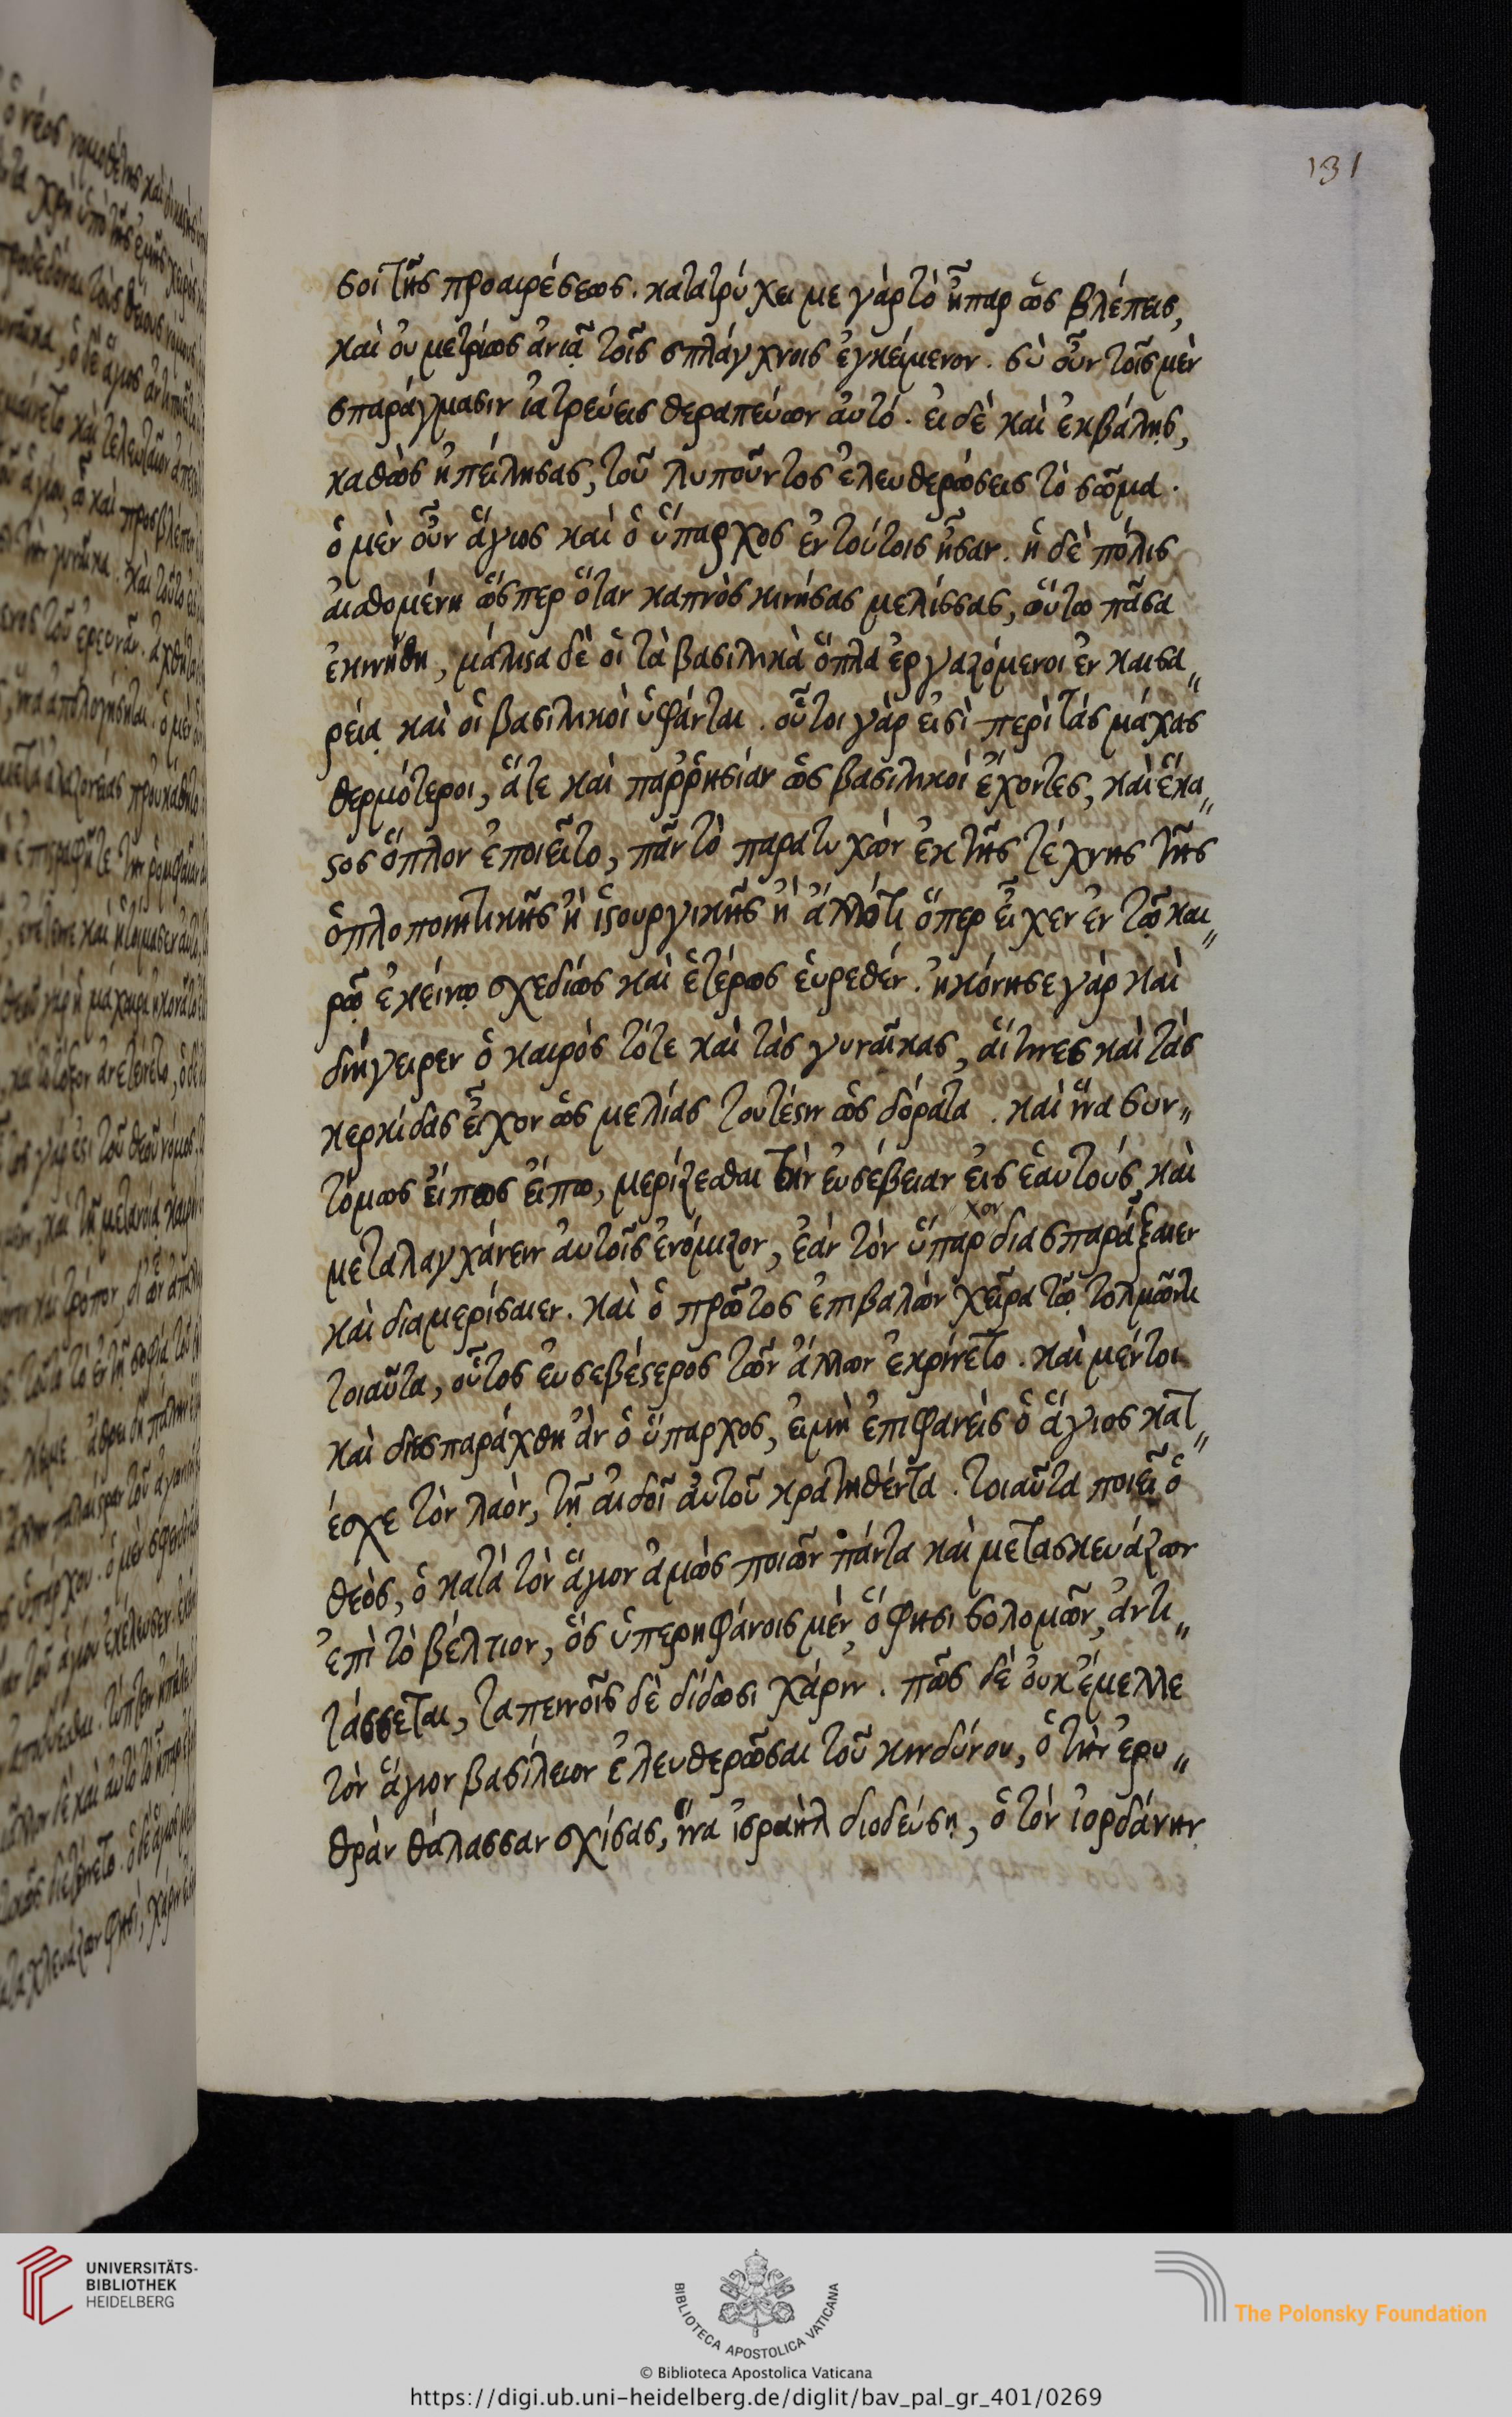 131
σοι τῆς προαιρέσεως. κατατρύχει με γὰρ τὸ ἧπαρ ὡς βλέπεις,
καὶ οὐ μετρίως ἀνιᾷ τοῖς σπλάγχνοις ἐγκείμενον. σὺ οὖν τοῖς μὲν
σπαράγμασιν ἰατρεύεις θεραπεύων ἀυτό. ει δὲ καὶ ἐκβάλῃς,
καθὼς ἠπείλησας, τοῦ λυποῦντος ἐλευθερώσεις τὸ σῶμα.
ὁ μὲν οὖν ἅγιος καὶ ὁ ὕπαρχος ἐν τούτοις ἦσαν. ἡ δὲ πόλις
αισθομένη ὥσπερ ὅταν καπνὸς κινήσας μελίσσας, οὕτω πᾶσα
ἐκινήθη, μάλιϛα δὲ οἱ τὰ βασιλικὰ ὅπλα ἐργαζόμενοι ἐν καισα„
ρείᾳ καὶ οἱ βασιλικοὶ ὑφάνται. οὗτοι γὰρ εἰσὶ περὶ τὰς μάχας
θερμότεροι, ἅτε καὶ παῤῥησίαν ὡς βασιλικοὶ ἔχοντες, καὶ ἕκα„
ϛος ὅπλον ἐποιεῖτο, πᾶν τὸ παρατυχὼν ἐκ τῆς τέχνης τῆς
ὁπλοποιητικῆς ἢ ἱϛουργικῆς ἢ ἄλλό τι ὅπερ εἶχεν ἐν τῷ και„
ρῷ ἐκείνῳ σχεδίως καὶ ἑτέρως ἑυρεθέν. ἠκόνησε γὰρ καὶ
διήγειρεν ὁ καιρὸς τότε καὶ τὰς γυναῖκας, ἅιτινες καὶ τὰς
κερκίδας εἶχον ὡς μελίας τουτέϛιν ὡς δόρατα. καὶ ἵνα συν„
τόμως ἔιπως ἔιπω, μερίζεσθαι τὴν ἐυσέβειαν ἐις ἑαυτοὺς καὶ
χον
μεταλαγχάνειν ἀυτοῖς ἐνόμιζον, ἐὰν τὸν ὕπαρ διασπαράξαιεν
καὶ διαμερίσαιεν. καὶ ὁ πρῶτος ἐπιβαλὼν χεῖρα τῷ τολμῶντι
τοιαῦτα, οὗτος ἐυσεβέϛερος τῶν ἄλλων ἐκρίνετο. καὶ μέντοι
καὶ διεσπαράχθη ἂν ὁ ὕπαρχος, ἐιμὴ ἐπιφανεὶς ὁ ἅγιος κατ„
έσχε τὸν λαὸν, τῇ ἀιδοῖ ἀυτοῦ κρατηθέντα. τοιαῦτα ποιεῖ ὁ
θεὸς, ὁ κατὰ τὸν ἅγιον ἀμὼς ποιῶν πάντα καὶ μετασκευάζων
ἐπὶ τὸ βέλτιον, ὃς ὑπερηφάνοις μὲν, ὅ φησι σολομῶν, ἀντι„
τάσσεται, ταπεινοῖς δὲ δίδωσι χάριν. πῶς δὲ ὀυκ ἔμελλε
τὸν ἅγιον βασίλειον ἐλευθερῶσαι τοῦ κινδύνου, ὁ τὴν ἐρυ„
θρὰν θάλασσαν σχίσας, ἵνα ἰσραὴλ διοδεύσῃ, ὁ τὸν ἰορδάνην
UNIVERSITÄTS-
BIBLIOTHEK
HEIDELBERG
BIBLIOTECA APOSTOLICA VATICANA
The Polonsky Foundation
© Biblioteca Apostolica Vaticana
https://digi.ub.uni-heidelberg.de/diglit/bav_pal_gr_401/0269